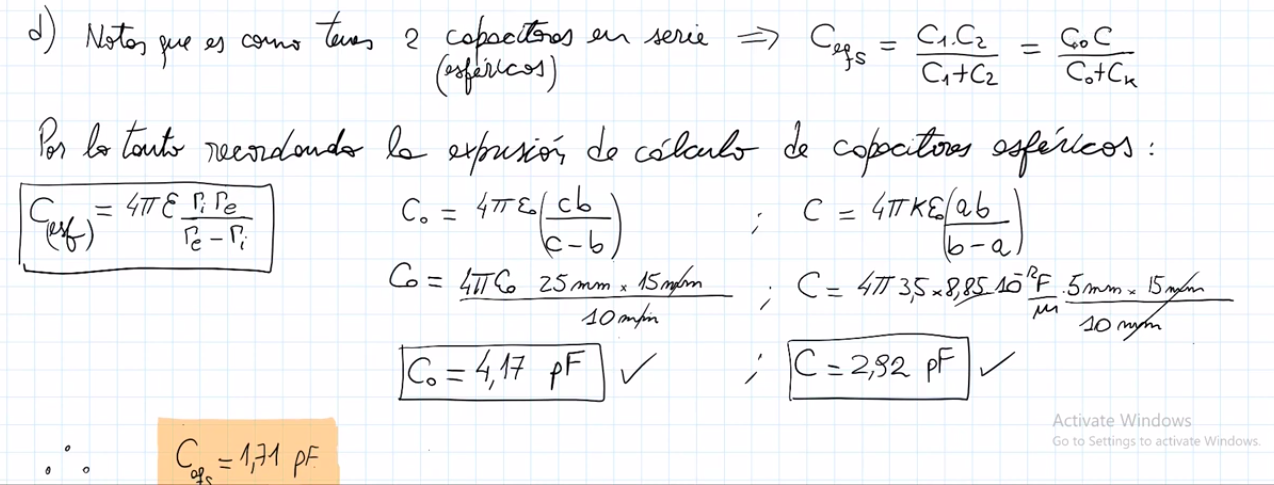 d) Notar que es como tener 2 capacitores en serie ⇒ C_eqs = C₁.C₂ / C₁+C₂ = C₀C / C₀+Cₖ
(esféricos)
Por lo tanto recordando la expresión de cálculo de capacitores esféricos:
C(esf) = 4πε rᵢ rₑ / rₑ - rᵢ
C₀ = 4πε₀ (cb / c-b) ; C = 4πkε₀ (ab / b-a)
C₀ = 4πε₀ 25mm × 15mm / 10mm ; C = 4π 3,5 × 8,85 10⁻¹² F/m . 5mm × 15mm / 10mm
C₀ = 4,17 pF ✓ ; C = 2,92 pF ✓
Activate Windows
Go to Settings to activate Windows.
∴ C_eqs = 1,71 pF